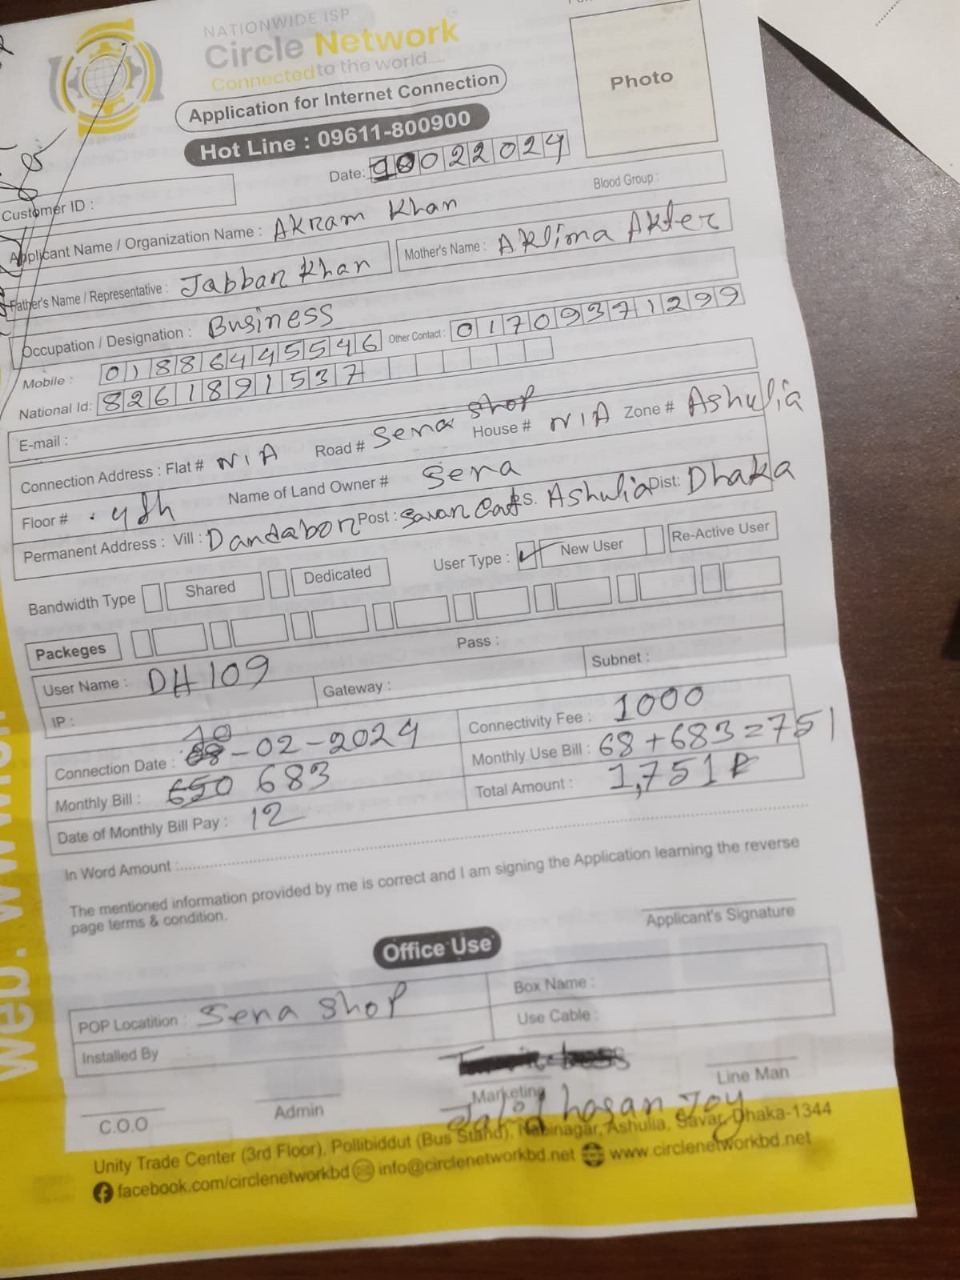 NATIONWIDE ISP
Circle Network
Connected to the world....
Application for Internet Connection
Hot Line : 09611-800900
Photo
Date: 10022024
Customer ID :
Blood Group :
Applicant Name / Organization Name : Akram Khan
Father's Name / Representative : Jabban Khan Mother's Name : Aklima Akter
Occupation / Designation : Business
Mobile : 01886445546 Other Contact : 01709371299
National Id: 8261891537
E-mail :
Connection Address : Flat # N/A Road # Sena shop House # N/A Zone # Ashulia
Floor # 4th Name of Land Owner # Sena
Permanent Address : Vill : Dandabon Post : Savan Ps. Ashulia Dist: Dhaka
Bandwidth Type Shared Dedicated User Type : ✓ New User Re-Active User
Packeges
User Name : DH109 Pass :
IP : Gateway : Subnet :
Connection Date : 10-02-2024 Connectivity Fee : 1000
Monthly Bill : 650 683 Monthly Use Bill : 68+683=751
Date of Monthly Bill Pay : 12 Total Amount : 1,751
In Word Amount :
The mentioned information provided by me is correct and I am signing the Application learning the reverse
page terms & condition.
Applicant's Signature
Office Use
POP Locatition : Sena shop Box Name :
Use Cable :
Installed By
C.O.O Admin Marketing Line Man
Zahid hasan Joy
Unity Trade Center (3rd Floor), Pollibiddut (Bus Stand), Nabinagar, Ashulia, Savar, Dhaka-1344
facebook.com/circlenetworkbd info@circlenetworkbd.net www.circlenetworkbd.net
web: www